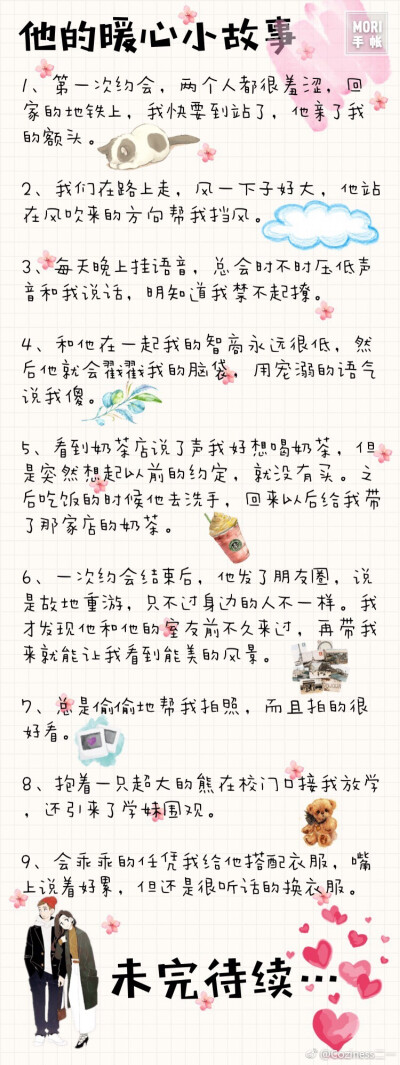 他的暖心小故事
MORI
手帐
1、第一次约会，两个人都很羞涩，回
家的地铁上，我快要到站了，他亲了我
的额头。
2、我们在路上走，风一下子好大，他站
在风吹来的方向帮我挡风。
3、每天晚上挂语音，总会时不时压低声
音和我说话，明知道我禁不起撩。
4、和他在一起我的智商永远很低，然
后他就会戳戳我的脑袋，用宠溺的语气
说我傻。
5、看到奶茶店说了声我好想喝奶茶，但
是突然想起以前的约定，就没有买。之
后吃饭的时候他去洗手，回来以后给我带
了那家店的奶茶。
6、一次约会结束后，他发了朋友圈，说
是故地重游，只不过身边的人不一样。我
才发现他和他的室友前不久来过，再带我
来就能让我看到能美的风景。
7、总是偷偷地帮我拍照，而且拍的很
好看。
8、抱着一只超大的熊在校门口接我放学
，还引来了学妹围观。
9、会乖乖的任凭我给他搭配衣服，嘴
上说着好累，但还是很听话的换衣服。
未完待续…
@coziness二一